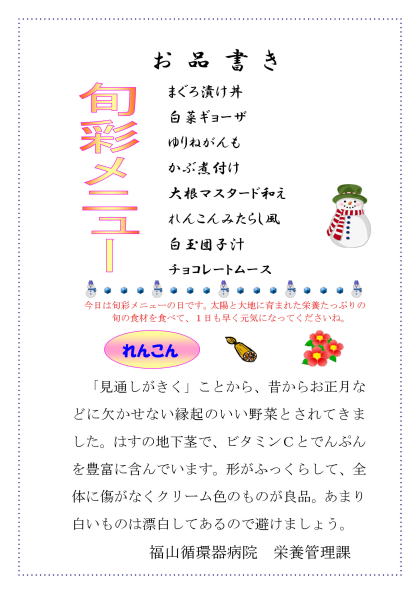 お品書き
旬彩メニュー
まぐろ漬け丼
白菜ギョーザ
ゆりねがんも
かぶ煮付け
大根マスタード和え
れんこんみたらし風
白玉団子汁
チョコレートムース
今日は旬彩メニューの日です。太陽と大地に育まれた栄養たっぷりの
旬の食材を食べて、１日も早く元気になってくださいね。
れんこん
「見通しがきく」ことから、昔からお正月な
どに欠かせない縁起のいい野菜とされてきま
した。はすの地下茎で、ビタミンＣとでんぷん
を豊富に含んでいます。形がふっくらして、全
体に傷がなくクリーム色のものが良品。あまり
白いものは漂白してあるので避けましょう。
福山循環器病院　栄養管理課